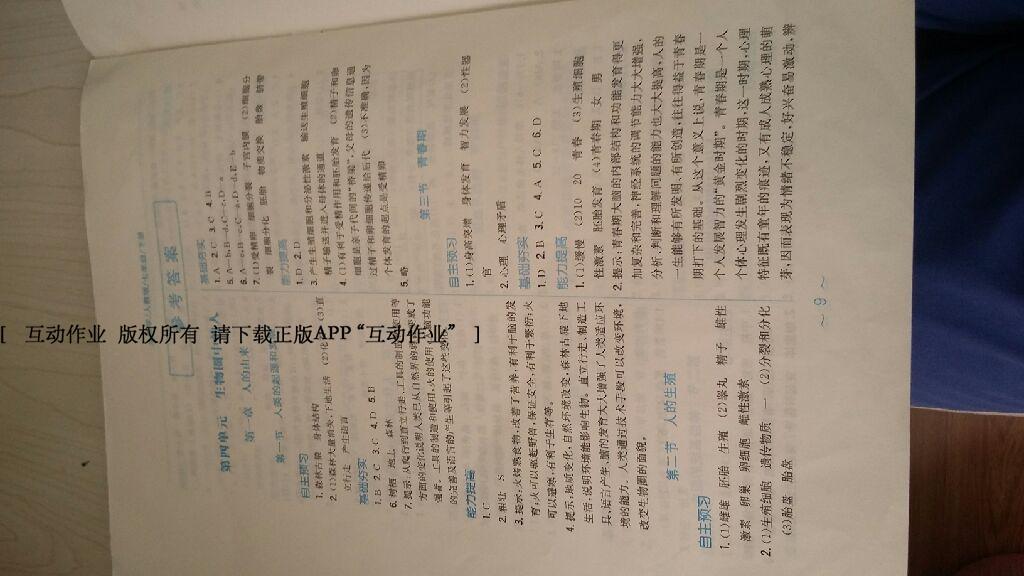 [ 互动作业 版权所有 请下载正版APP“互动作业” ]
参考答案
第四单元 生物圈中的人
第一章 人的由来
第一节 人类的起源和
自主预习
1.森林古猿 身体结构
2.(1)森林大量消失,下地生活
立行走 产生语言
基础夯实
1.B 2.C 3.C 4.D 5.D
6.树栖 地上 森林
7.提示:从爬行到直立行走,工具的制造
能力提高
1.C
3.提示:火烤熟食物,改善了营养,有利于脑的发
育;火可以驱赶野兽,保证安全,有利于繁衍;火
可以避寒,有利于生存等。
4.提示:地质变化,自然环境改变,森林古猿下地
生活,说明环境能影响生物。直立行走,制造工
具,语言产生,脑的发育大大增强了人类适应环
境的能力。人类通过技术手段可以改变环境,
改变生物圈的面貌。
第二节 人的生殖
自主预习
1.(1)雌雄 胚胎 生殖 (2)睾丸 精子 雄性
激素 卵巢 卵细胞 雌性激素
2.(1)生殖细胞 遗传物质 一 (2)分裂和分化
(3)胎盘 胎盘
基础夯实
1.A 2.C 3.C 4.B
5.A—b,B—d,C—c,D—a
6.A—e,B—c,C—a,D—d,E—b
7.(1)受精卵 细胞分裂 子宫内膜 (2)细胞分
裂 细胞分化 胚胎 物质交换 胎盘 脐带
能力提高
1.D 2.D
3.产生生殖细胞和分泌性激素 输送生殖细胞
精子输送并进入母体的通道
4.(1)有利于受精作用和胚胎发育 (2)精子和卵
细胞是亲子代间的“桥梁”,父母的遗传信息通
过精子和卵细胞传递给后代 (3)不准确,因为
个体发育的起点是受精卵
5.略
第三节 青春期
自主预习
1.(1)身高突增 身体发育 智力发展 (2)性器
官
2.心理 心理矛盾
基础夯实
1.D 2.B 3.C 4.A 5.C 6.D
能力提高
1.(1)缓慢 (2)10 20 青春 (3)生殖细胞
性激素 胚胎发育 (4)青春期 女 男
2.提示:青春期大脑的内部结构和功能发育得更
加复杂和完善,神经系统的调节能力大大增强,
分析、判断和理解问题的能力也大大提高,人的
一生能够有所发明、有所创造,往往得益于青春
期打下的基础。从这个意义上说,青春期是一
个人发展智力的“黄金时期”。青春期是一个人
个体心理发生剧烈变化的时期,这一时期,心理
特征既有童年的痕迹,又有成人成熟心理的萌
芽,因而表现为情绪不稳定,好兴奋易激动,辨
~ 9 ~